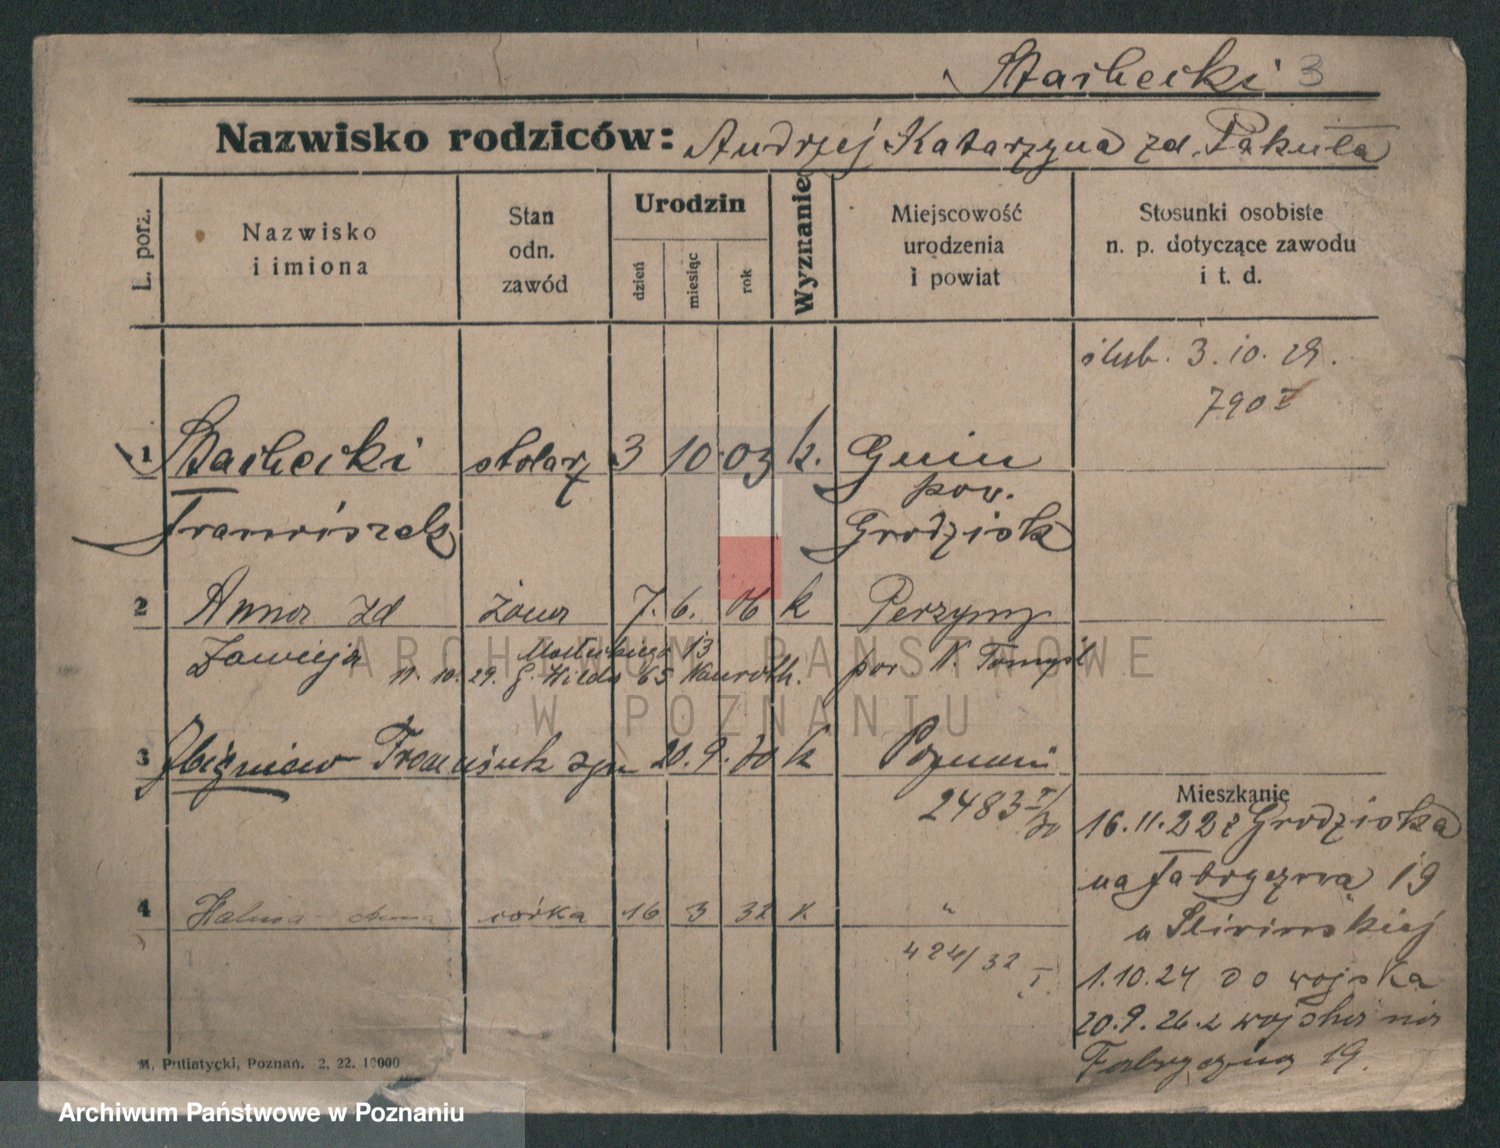 Stachecki 3
Nazwisko rodziców: Andrzej Katarzyna zd. Pakuła
L. porz.
Nazwisko
i imiona
Stan
odn.
zawód
Urodzin
dzień
miesiąc
rok
Wyznanie
Miejscowość
urodzenia
i powiat
Stosunki osobiste
n. p. dotyczące zawodu
i t. d.
ślub. 3.10.29.
790 I
1 Stachecki stolarz 3 10 03 k. Gnin
pow.
Franciszek Grodzisk
2 Anna zd żona 7. 6. 06 k Perzyny
Zawieja 13
pow N. Tomyśl
11.10.29. G. Wilda 65
3 Zbigniew Franciszek syn 20. 9. 30 k Poznań
2483 I/30
4 Halina córka 16 3 32 k "
424/32 I
Mieszkanie
16.11.22 z Grodziska
na Fabryczną 19
u Śliwińskiej
1.10.24 do wojska
20.9.26 z wojska na
Fabryczną 19.
M. Putiatycki, Poznań. 2. 22. 10000
ARCHIWUM PAŃSTWOWE
W POZNANIU
Archiwum Państwowe w Poznaniu